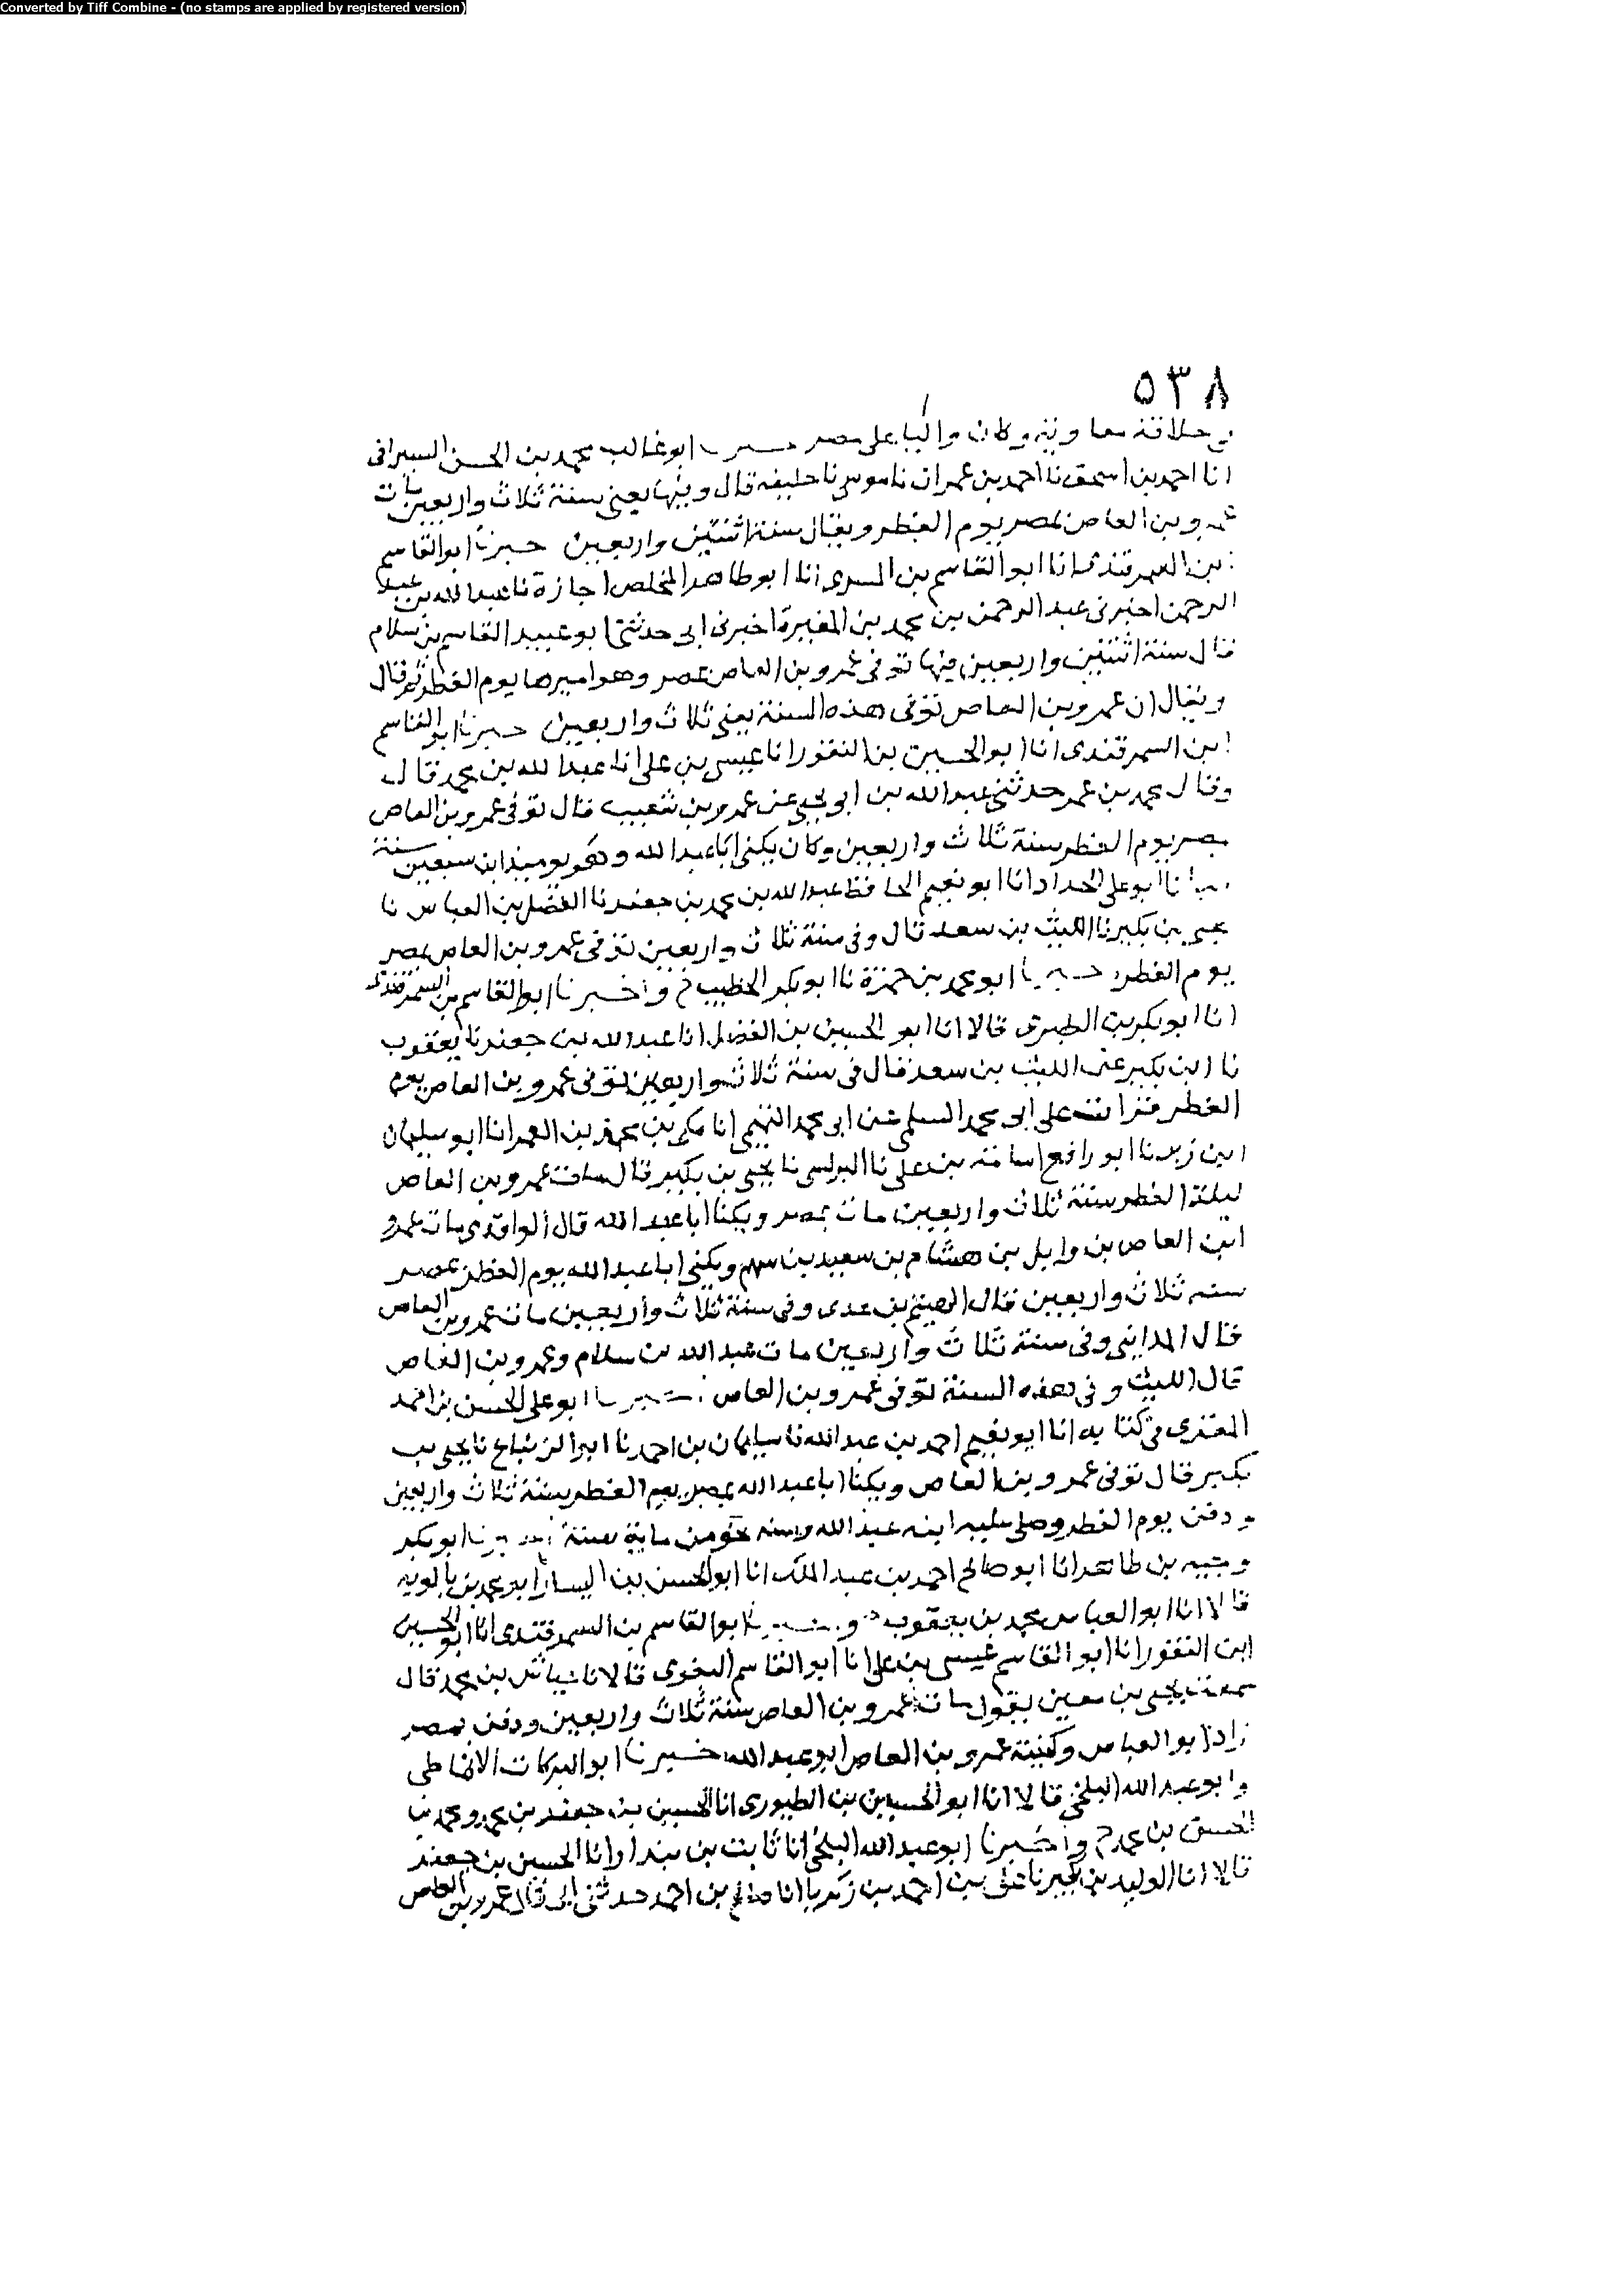 Converted by Tiff Combine - (no stamps are applied by registered version)
٥٣٨
خلافة معاوية وكان واليا على مصر ابو غالب محمد بن الحسن السيرافى
انا احمد بن اسحق نا احمد بن عمران نا موسى نا خليفه قال وفيها يعنى سنة ثلاث واربعين مات
عمرو بن العاص بمصر يوم الفطر ويقال سنة اثنتين واربعين خبرنا ابو القاسم
بن السمرقندى انا ابو القاسم بن السرى انا ابو طاهر المخلص اجازة نا عبد الله بن عبد
الرحمن اخبرنى عبد الرحمن بن محمد بن المغيرة اخبرنى ابى حدثنى ابو عبيد القاسم بن سلام
قال سنة اثنتين واربعين فيها توفى عمرو بن العاص بمصر وهو اميرها يوم الفطر ثم قال
ويقال ان عمرو بن العاص توفى هذه السنة يعنى ثلاث واربعين خبرنا ابو القاسم
ابن السمرقندى انا ابو الحسين بن النقور انا عيسى بن على انا عبد الله بن محمد قال
وقال محمد بن عمر حدثنى عبد الله بن ابى يحيى عن عمرو بن شعيب قال توفى عمرو بن العاص
بمصر يوم الفطر سنة ثلاث واربعين وكان يكنى ابا عبد الله وهو يوميذ ابن سبعين سنة
نا ابو على الحداد انا ابو نعيم الحافظ عبد الله بن محمد بن جعفر نا الفضل بن العباس نا
يحيى بن بكير نا الليث بن سعد قال وفى سنة ثلاث واربعين توفى عمرو بن العاص بمصر
يوم الفطر خبرنا ابو محمد بن حمزة نا ابو بكر الخطيب ح واخبرنا ابو القاسم بن السمرقندى
انا ابو بكر بن الطبرى قالا انا ابو الحسين بن الفضل انا عبد الله بن جعفر نا يعقوب
نا ابن بكير عن الليث بن سعد قال فى سنة ثلاث واربعين توفى عمرو بن العاص يوم
الفطر قرات على ابى محمد السلمى عن ابى محمد التميمى انا مكى بن محمد بن الغمر انا ابو سليمان
ابن زبر نا ابو رافع اسامة بن على نا البرلسى نا يحيى بن بكير قال مات عمرو بن العاص
ليلة الفطر سنة ثلاث واربعين مات بمصر ويكنا ابا عبد الله قال الواقدى مات عمرو
ابن العاص بن وايل بن هشام بن سعيد بن سهم ويكنى ابا عبد الله يوم الفطر بمصر
سنه ثلاث واربعين قال الهيثم بن عدى وفى سنة ثلاث واربعين مات عمرو بن العاص
قال المداينى وفى سنة ثلاث واربعين مات عبد الله بن سلام وعمرو بن العاص
قال الليث وفى هذه السنة توفى عمرو بن العاص خبرنا ابو على الحسن بن احمد
المقرى فى كتابه انا ابو نعيم احمد بن عبد الله نا سليمان بن احمد نا ابو الزنباع نا يحيى بن
بكير قال توفى عمرو بن العاص ويكنا ابا عبد الله بمصر يوم الفطر سنة ثلاث واربعين
ودفن يوم الفطر وصلى عليه ابنه عبد الله وسنه نحو من ماية سنة خبرنا ابو بكر
وجيه بن طاهر انا ابو صالح احمد بن عبد الملك انا ابو الحسن بن محمد بن بالويه
قالا انا ابو العباس محمد بن يعقوب ح وخبرنا ابو القاسم بن السمرقندى انا ابو الحسين
ابن النقور انا ابو القاسم عيسى بن على انا ابو القاسم البغوى قالا نا عباس بن محمد قال
سمعت يحيى بن معين يقول مات عمرو بن العاص سنة ثلاث واربعين ودفن بمصر
زاد ابو العباس وكنية عمرو بن العاص ابو عبد الله خبرنا ابو البركات الانماطى
وابو عبد الله البلخى قالا انا ابو الحسين بن الطيورى انا الحسين بن جعفر بن محمد ومحمد بن
الحسن بن محمد ح واخبرنا ابو عبد الله البلخى انا ثابت بن بندار انا الحسين بن جعفر
قالا انا الوليد بن بكير نا على بن احمد بن زكريا انا صالح بن احمد حدثنى ابى قال عمرو بن العاص